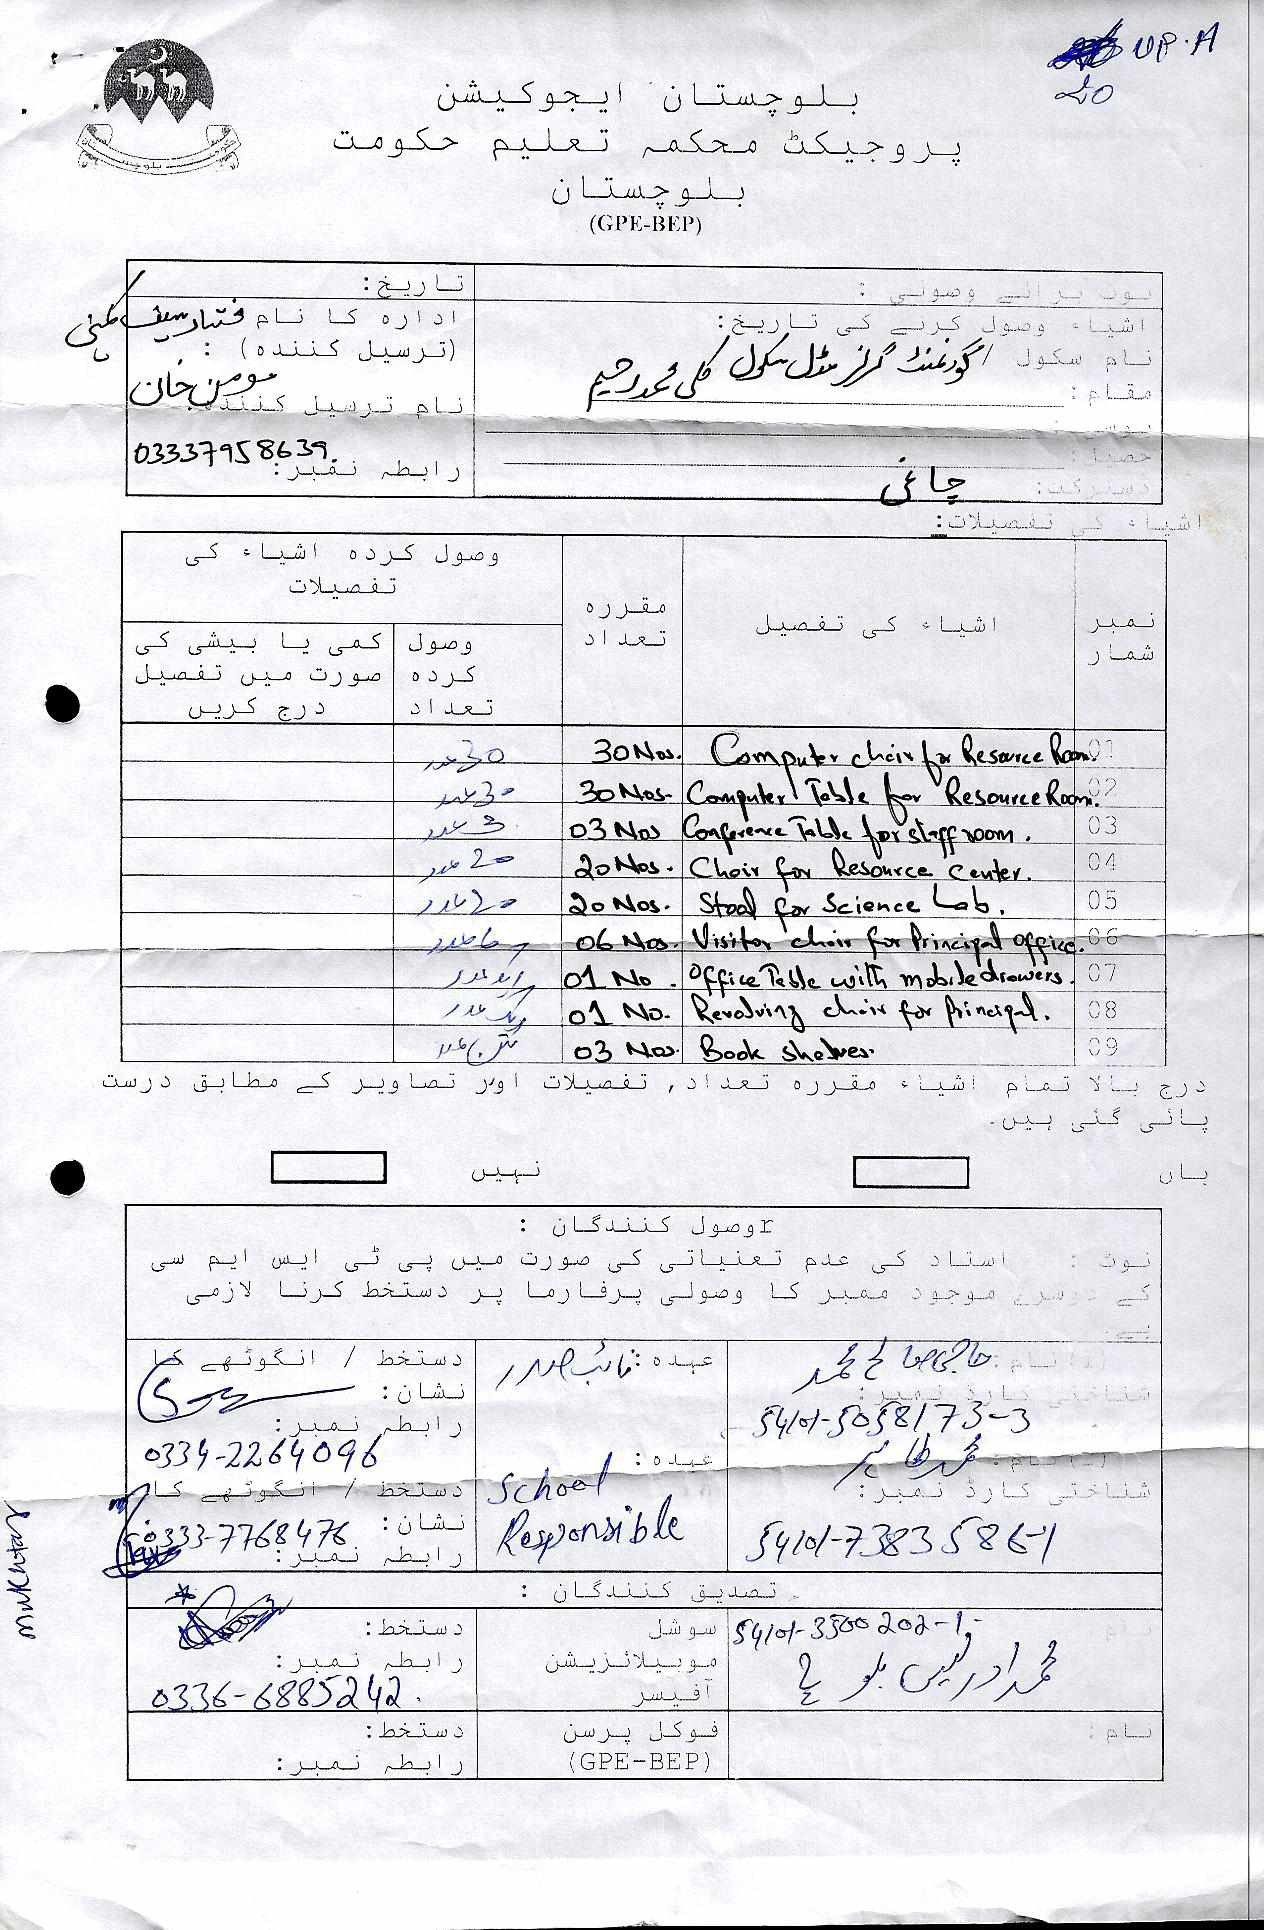 UP.A
20
بلوچستان ایجوکیشن
پروجیکٹ محکمہ تعلیم حکومت
بلوچستان
(GPE-BEP)
نوٹ برائے وصولی :
تاریخ:
اشیاء وصول کرنے کی تاریخ:
ادارہ کا نام
(ترسیل کنندہ) :
نام سکول / گورنمنٹ گرلز مڈل سکول کلی محمد رحیم
مقام:
نام ترسیل کنندہ: مومن خان
رابطہ نمبر: 03337958639.
ڈسٹرکٹ: چاغی
اشیاء کی تفصیلات:
نمبر شمار
اشیاء کی تفصیل
مقررہ تعداد
وصول کردہ اشیاء کی تفصیلات
وصول کردہ تعداد
کمی یا بیشی کی صورت میں تفصیل درج کریں
01 Computer chair for Resource Room. 30 Nos. 30 عدد
02 Computer Table for Resource Room. 30 Nos. 30 عدد
03 Conference Table for staff room. 03 Nos 3 عدد
04 Chair for Resource Center. 20 Nos. 20 عدد
05 Stool for Science Lab. 20 Nos. 20 عدد
06 Visitor chair for Principal office. 06 Nos. 6 عدد
07 Office Table with mobile drawers. 01 No. ایک عدد
08 Revolving chair for principal. 01 No. ایک عدد
09 Book shelves. 03 Nos. تین عدد
درج بالا تمام اشیاء مقررہ تعداد, تفصیلات اور تصاویر کے مطابق درست
پائی گئی ہیں.
ہاں
نہیں
rوصول کنندگان :
نوٹ : استاد کی عدم تعنیاتی کی صورت میں پی ٹی ایس ایم سی
کے دوسرے موجود ممبر کا وصولی پرفارما پر دستخط کرنا لازمی
ہے.
(1) نام: حاجی صالح محمد
شناختی کارڈ نمبر:
54101-5058173-3
عہدہ: نائب صدر
دستخط / انگوٹھے کا
نشان:
رابطہ نمبر:
0334-2264096
(2) نام: محمد طاہر
شناختی کارڈ نمبر:
54101-7383586-1
عہدہ:
School
Responsible
دستخط / انگوٹھے کا
نشان:
0333-7768476
رابطہ نمبر:
Mukhtar
تصدیق کنندگان :
نام
54101-3500202-1-
محمد ادریس بلوچ
سوشل
موبیلائزیشن
آفیسر
دستخط:
رابطہ نمبر:
0336-6885242.
نام:
فوکل پرسن
(GPE-BEP)
دستخط:
رابطہ نمبر: